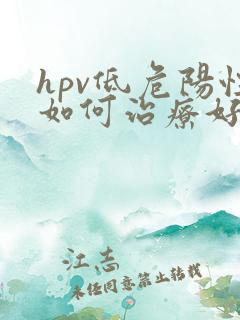 hpv低危陽性
如何治療好
江志
未任同意禁止轉載